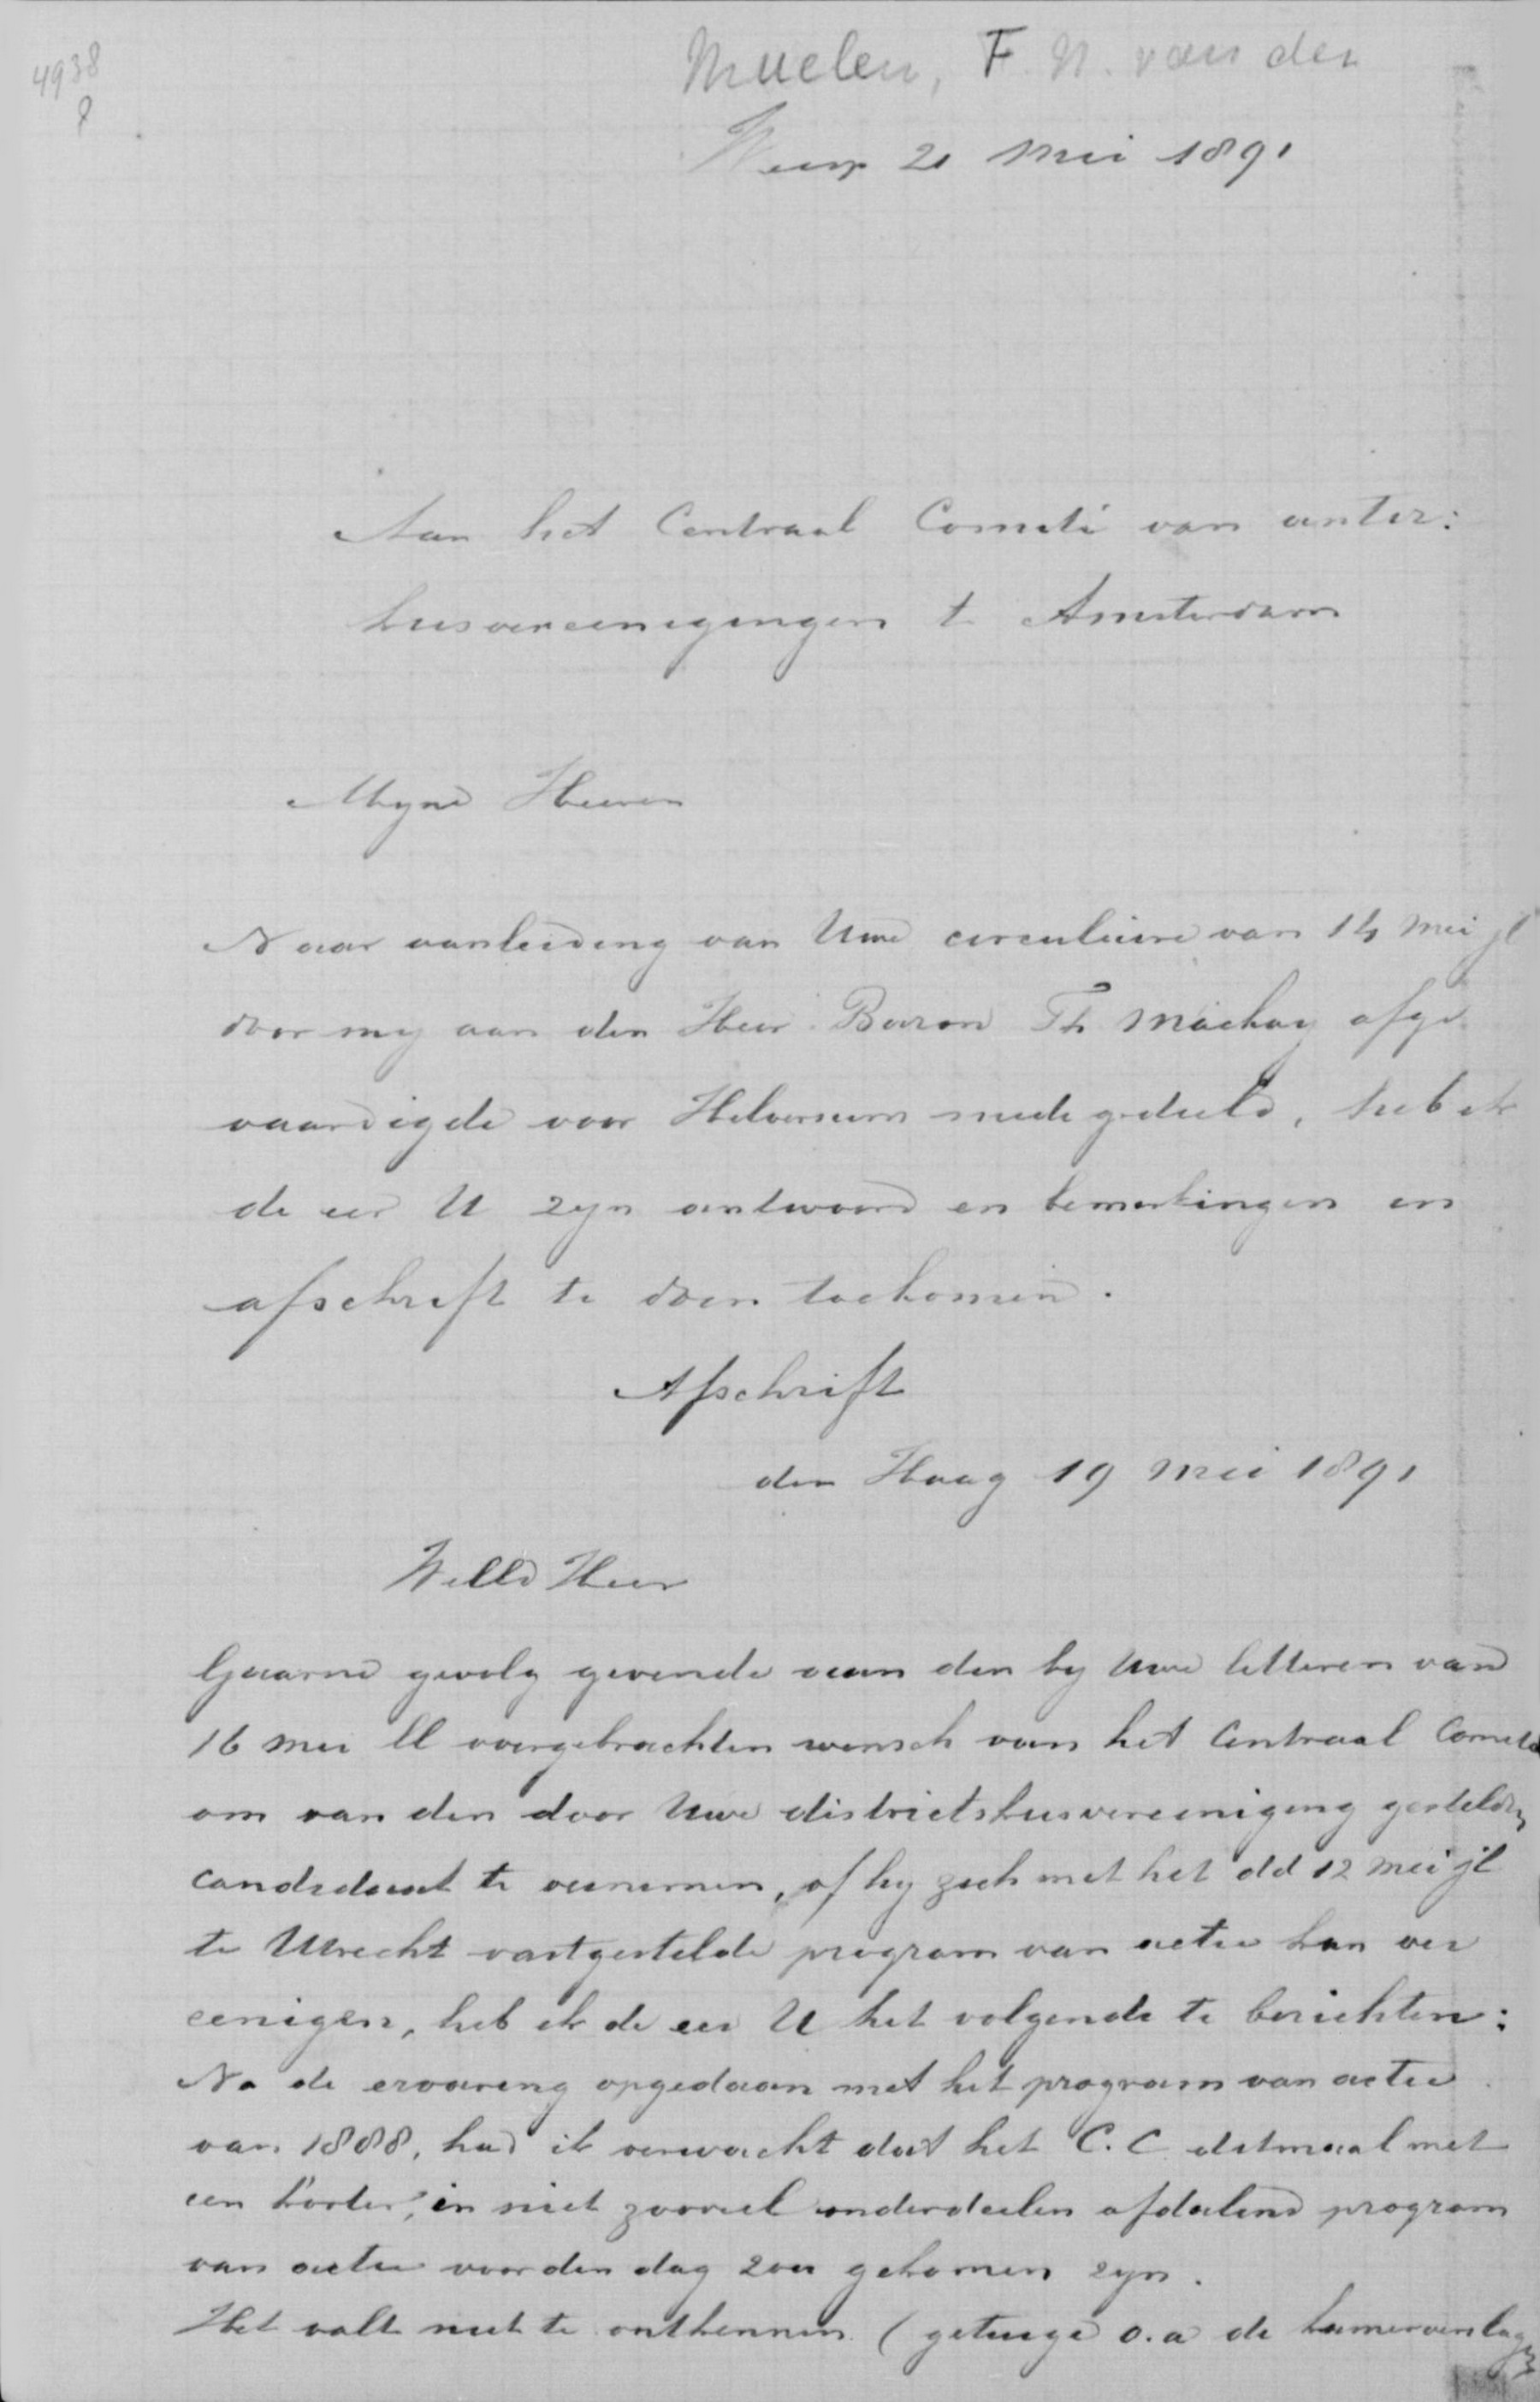 4938
8
Muelen, F. N. van der
Weesp 21 Mei 1891
Aan het Centraal Comité van antir:
kiesvereenigingen te Amsterdam
Mijne Heeren
Naar aanleiding van Uwe circulaire van 14 Mei jl
door mij aan den Heer Baron Th Mackay afge
vaardigde voor Hilversum medegedeeld, heb ik
de eer U zijn antwoord en bemerkingen in
afschrift te doen toekomen.
Afschrift
den Haag 19 Mei 1891
WelEd Heer
Gaarne gevolg gevende aan den bij Uwe letteren van
16 Mei ll overgebrachten wensch van het Centraal Comité
om van den door Uwe districtskiesvereeniging gestelden
candidaat te vernemen, of hij zich met het dd 12 Mei jl
te Utrecht vastgestelde program van actie kan ver
eenigen, heb ik de eer U het volgende te berichten:
Na de ervaring opgedaan met het program van actie
van 1888, had ik verwacht dat het C.C ditmaal met
een korter, in niet zooveel onderdeelen afdalend program
van actie voor den dag zou gekomen zijn.
Het valt niet te ontkennen (getuige o.a de kamerverslagen